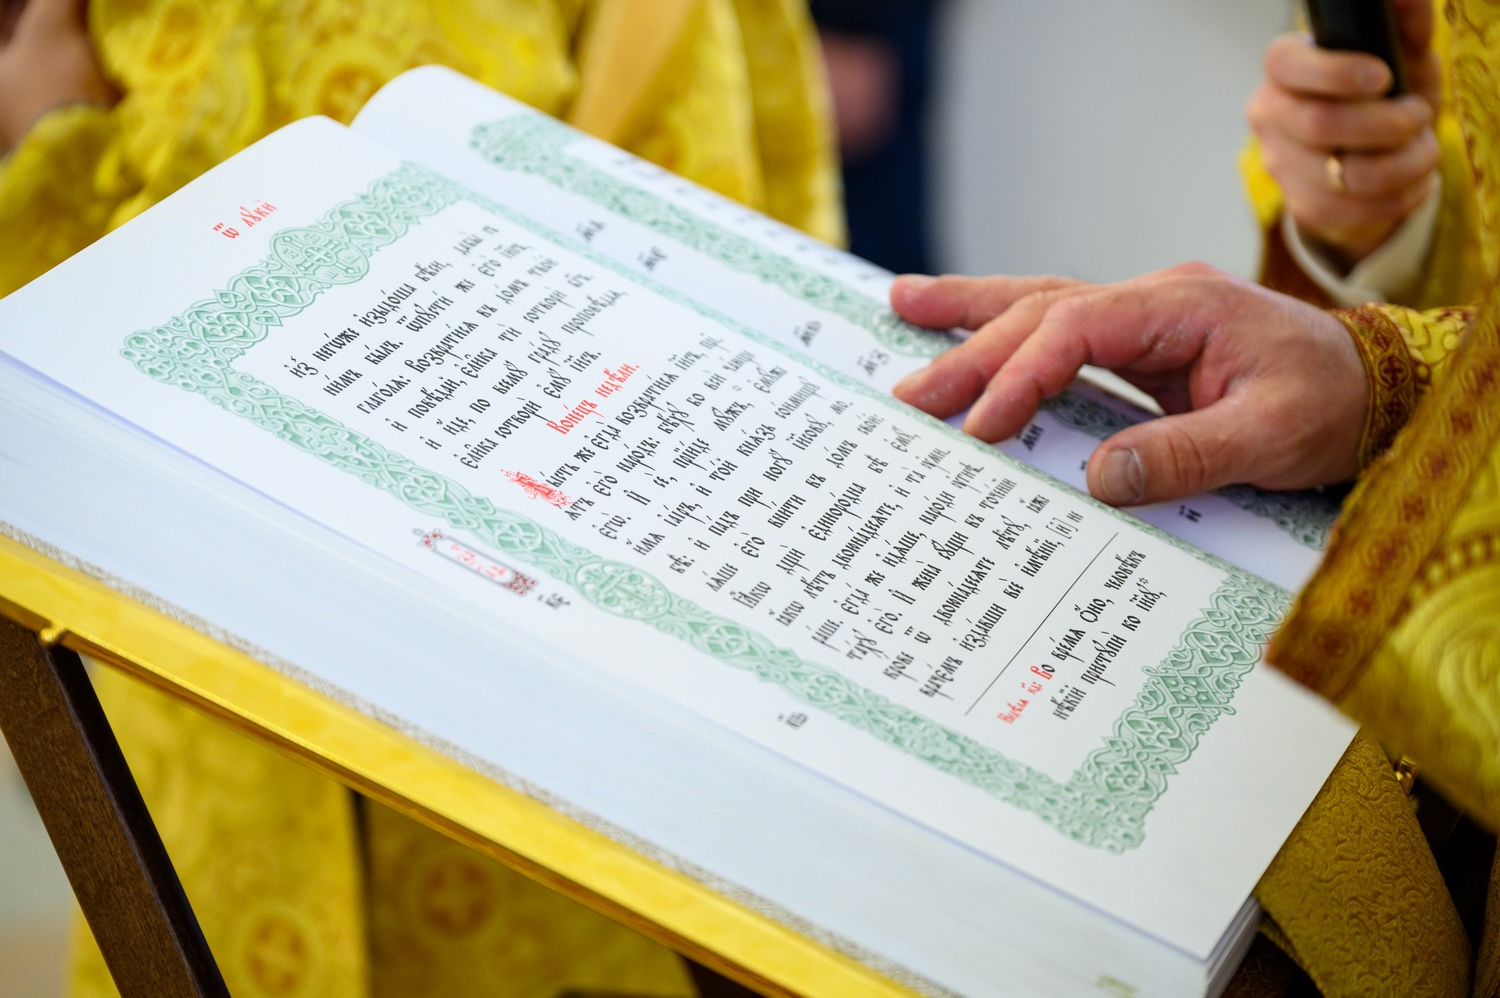 ѿ лꙋкѝ
из̾ негѡ́же изыдо́ша бѣ́си, дабы̀ съ
ни́мъ бы́лъ. ѿпꙋсти́ же є҆го̀ і҆и҃съ,
глаго́лѧ: возврати́сѧ въ до́мъ тво́й
и҆ повѣ́дай, є҆ли̑ка тѝ сотворѝ бг҃ъ.
и҆ и҆́де, по всемꙋ̀ гра́дꙋ проповѣ́даѧ,
є҆ли̑ка сотворѝ є҆мꙋ̀ і҆и҃съ.
Коне́цъ недѣ́ли.
Бы́сть же є҆гда̀ возврати́сѧ і҆и҃съ, прі-
ѧ́тъ є҆го̀ наро́дъ: бѣ́хꙋ бо всѝ ча́юще
є҆гѡ̀. И҆ сѐ, прїи́де мꙋ́жъ, є҆мꙋ́же
и҆́мѧ і҆аі́ръ, и҆ то́й кнѧ́зь со́нмищꙋ
бѣ̀: и҆ па́дъ при ногꙋ̀ і҆и҃совꙋ, мо-
лѧ́ше є҆го̀ вни́ти въ до́мъ сво́й:
ꙗ҆́кѡ дщѝ є҆диноро́дна бѣ̀ є҆мꙋ̀,
ꙗ҆́кѡ лѣ́тъ двоюна́десѧте, и҆ та̀ ᲂу҆мира́-
ше. є҆гда́ же и҆дѧ́ше, наро́ди ᲂу҆гнѣ-
та́хꙋ є҆го̀. И҆ жена̀ сꙋ́щи въ точе́нїи
кро́ве ѿ двоюна́десѧте лѣ́тꙋ, ꙗ҆́же
врачє́мъ и҆зда́вши всѐ и҆мѣ́нїе, [и҆] не
Во вре́мѧ ѻ҆́но, человѣ́къ
нѣ́кїй пристꙋпѝ ко і҆и҃сꙋ,